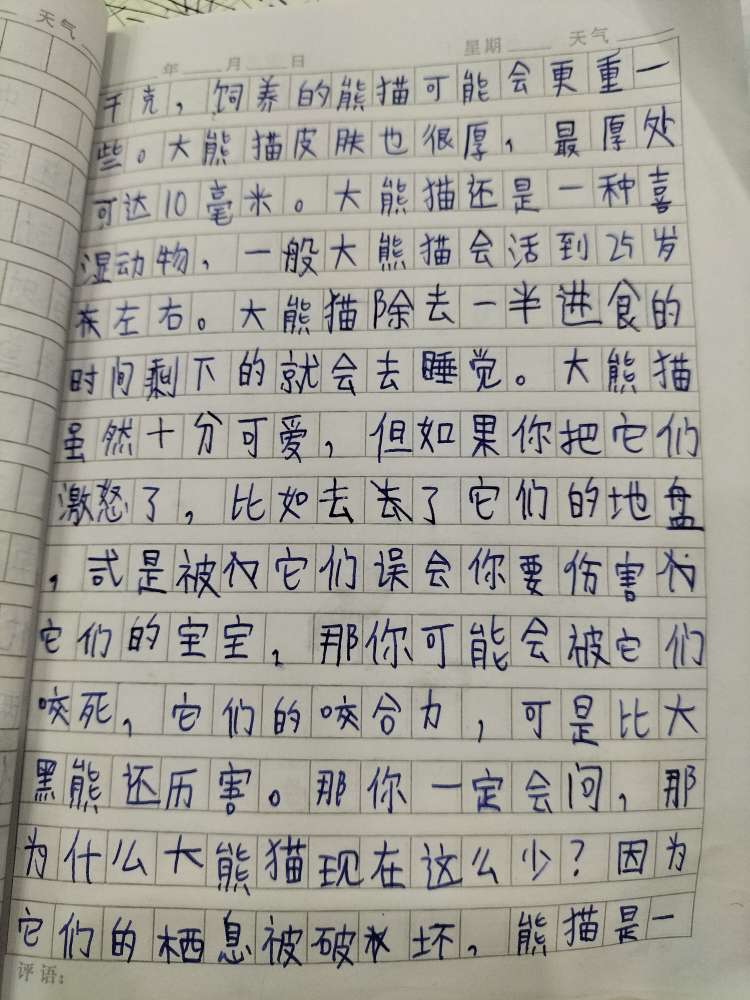 天气
年 月 日 星期 天气
千克，饲养的熊猫可能会更重一
些。大熊猫皮肤也很厚，最厚处
可达10毫米。大熊猫还是一种喜
湿动物，一般大熊猫会活到25岁
左右。大熊猫除去一半进食的
时间剩下的就会去睡觉。大熊猫
虽然十分可爱，但如果你把它们
激怒了，比如去去了它们的地盘
，或是被它们误会你要伤害
它们的宝宝，那你可能会被它们
咬死，它们的咬合力，可是比大
黑熊还历害。那你一定会问，那
为什么大熊猫现在这么少？因为
它们的栖息被破坏，熊猫是一
评语：